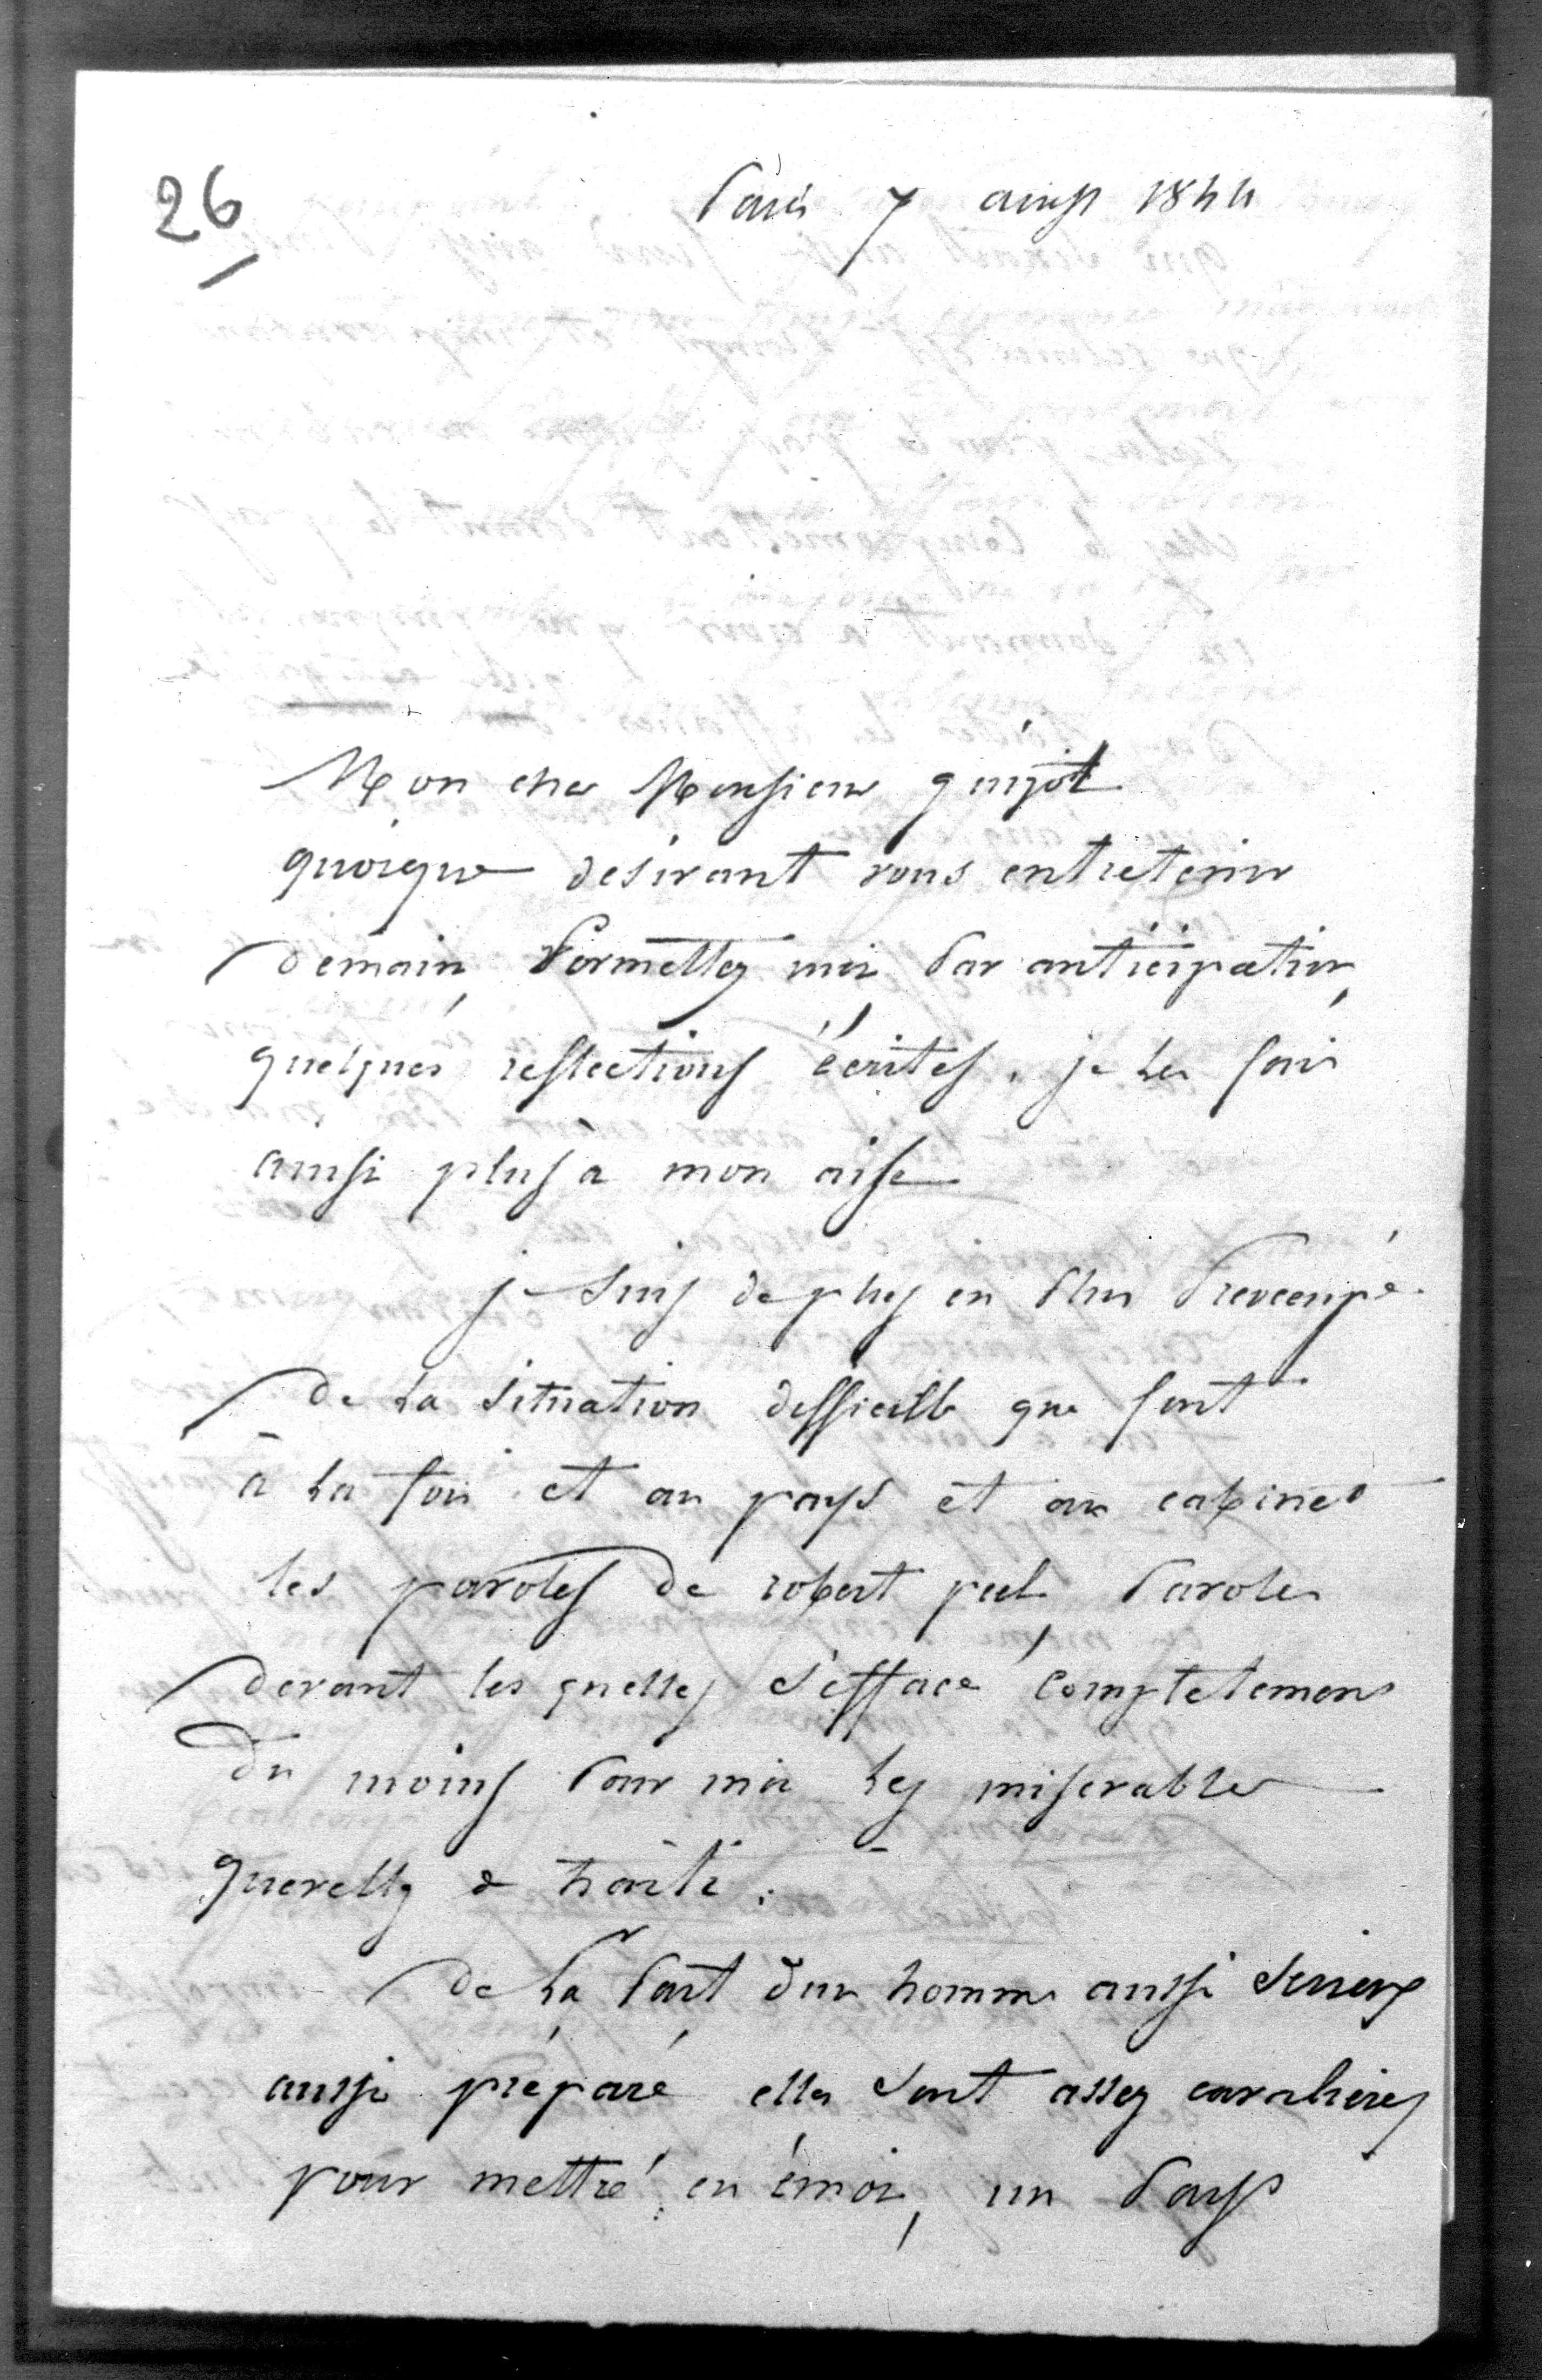 26
Paris 7 aoust 1844
Mon cher Monsieur guizot
quoique desirant vous entretenir
demain, Permettez moi Par anticipation,
quelques reflections écrites. je les fais
ainsi plus à mon aise
je suis de plus en Plus Preoccupé
de la situation difficille que font
à la fois et au pays et au cabinet
les paroles de robert peel, Paroles
devant les quelles s'efface completement
du moins Pour moi les miserables
querelles d haiti.
de la Part d'un homme aussi serieux
aussi préparé elles sont assez cavalieres
pour mettre en émoi, un Pays